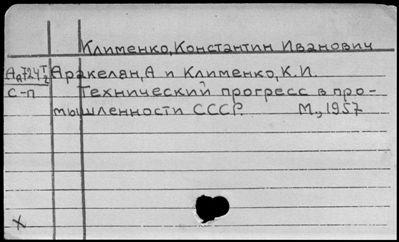 Клименко, Константин Иванович
Аракелян, А и Клименко, К.И.
С-П Технический прогресс в про-
мышленности СССР. М., 1957
X